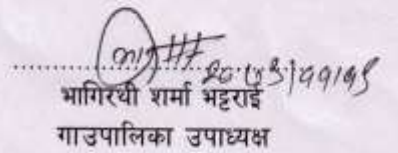 भागिरथी शर्मा भट्टराई
गाउपालिका उपाध्यक्ष